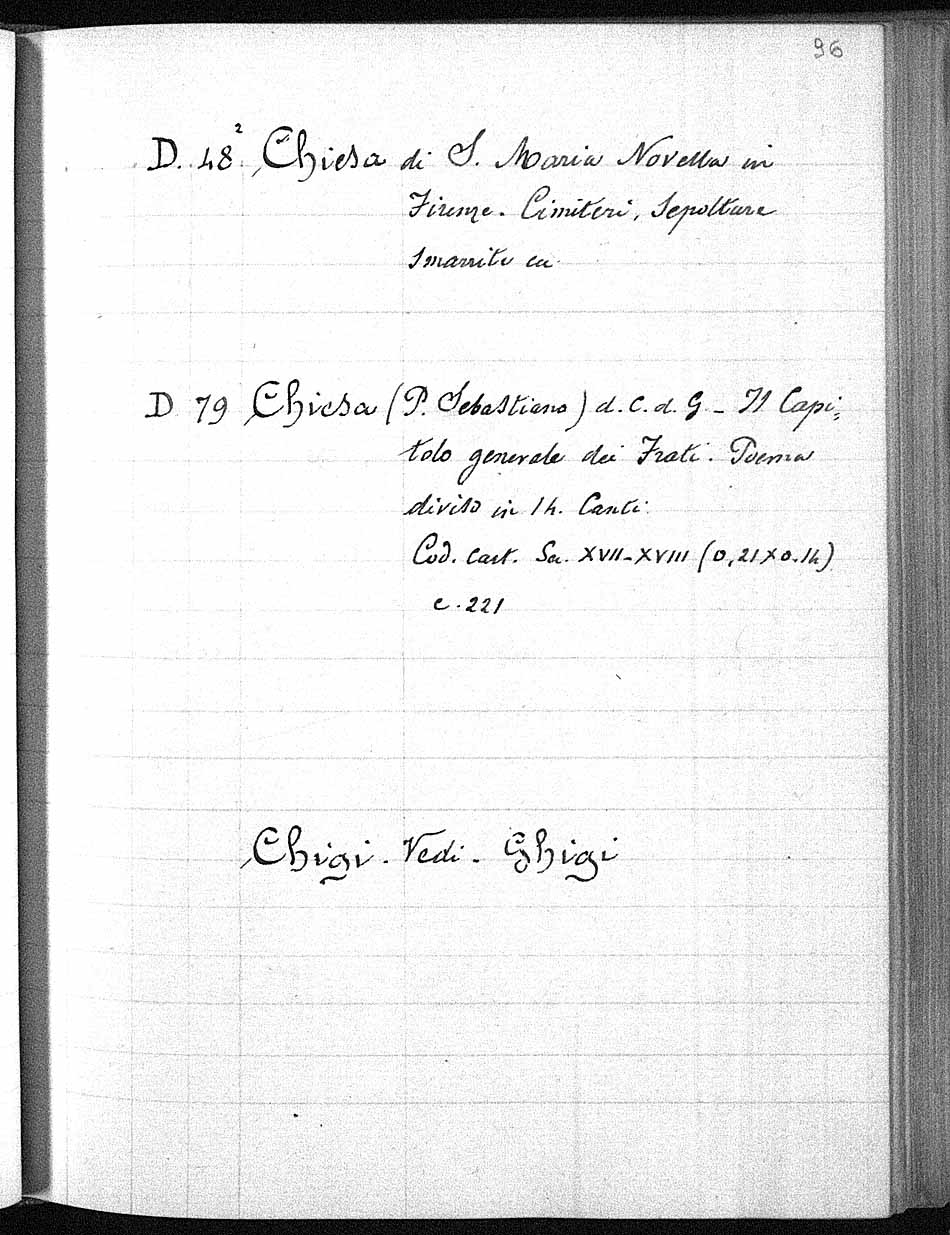 96
D. 48² Chiesa di S. Maria Novella in
Firenze. Cimiteri, Sepolture
Smarrite ca
D 79 Chiesa (P. Sebastiano) d. C. d. G. - Il Capi=
tolo generale dei Frati. Poema
diviso in 14. Canti.
Cod. cart. Sec. XVII-XVIII (0,21 x 0.14)
c. 221
Chigi. Vedi. Ghigi